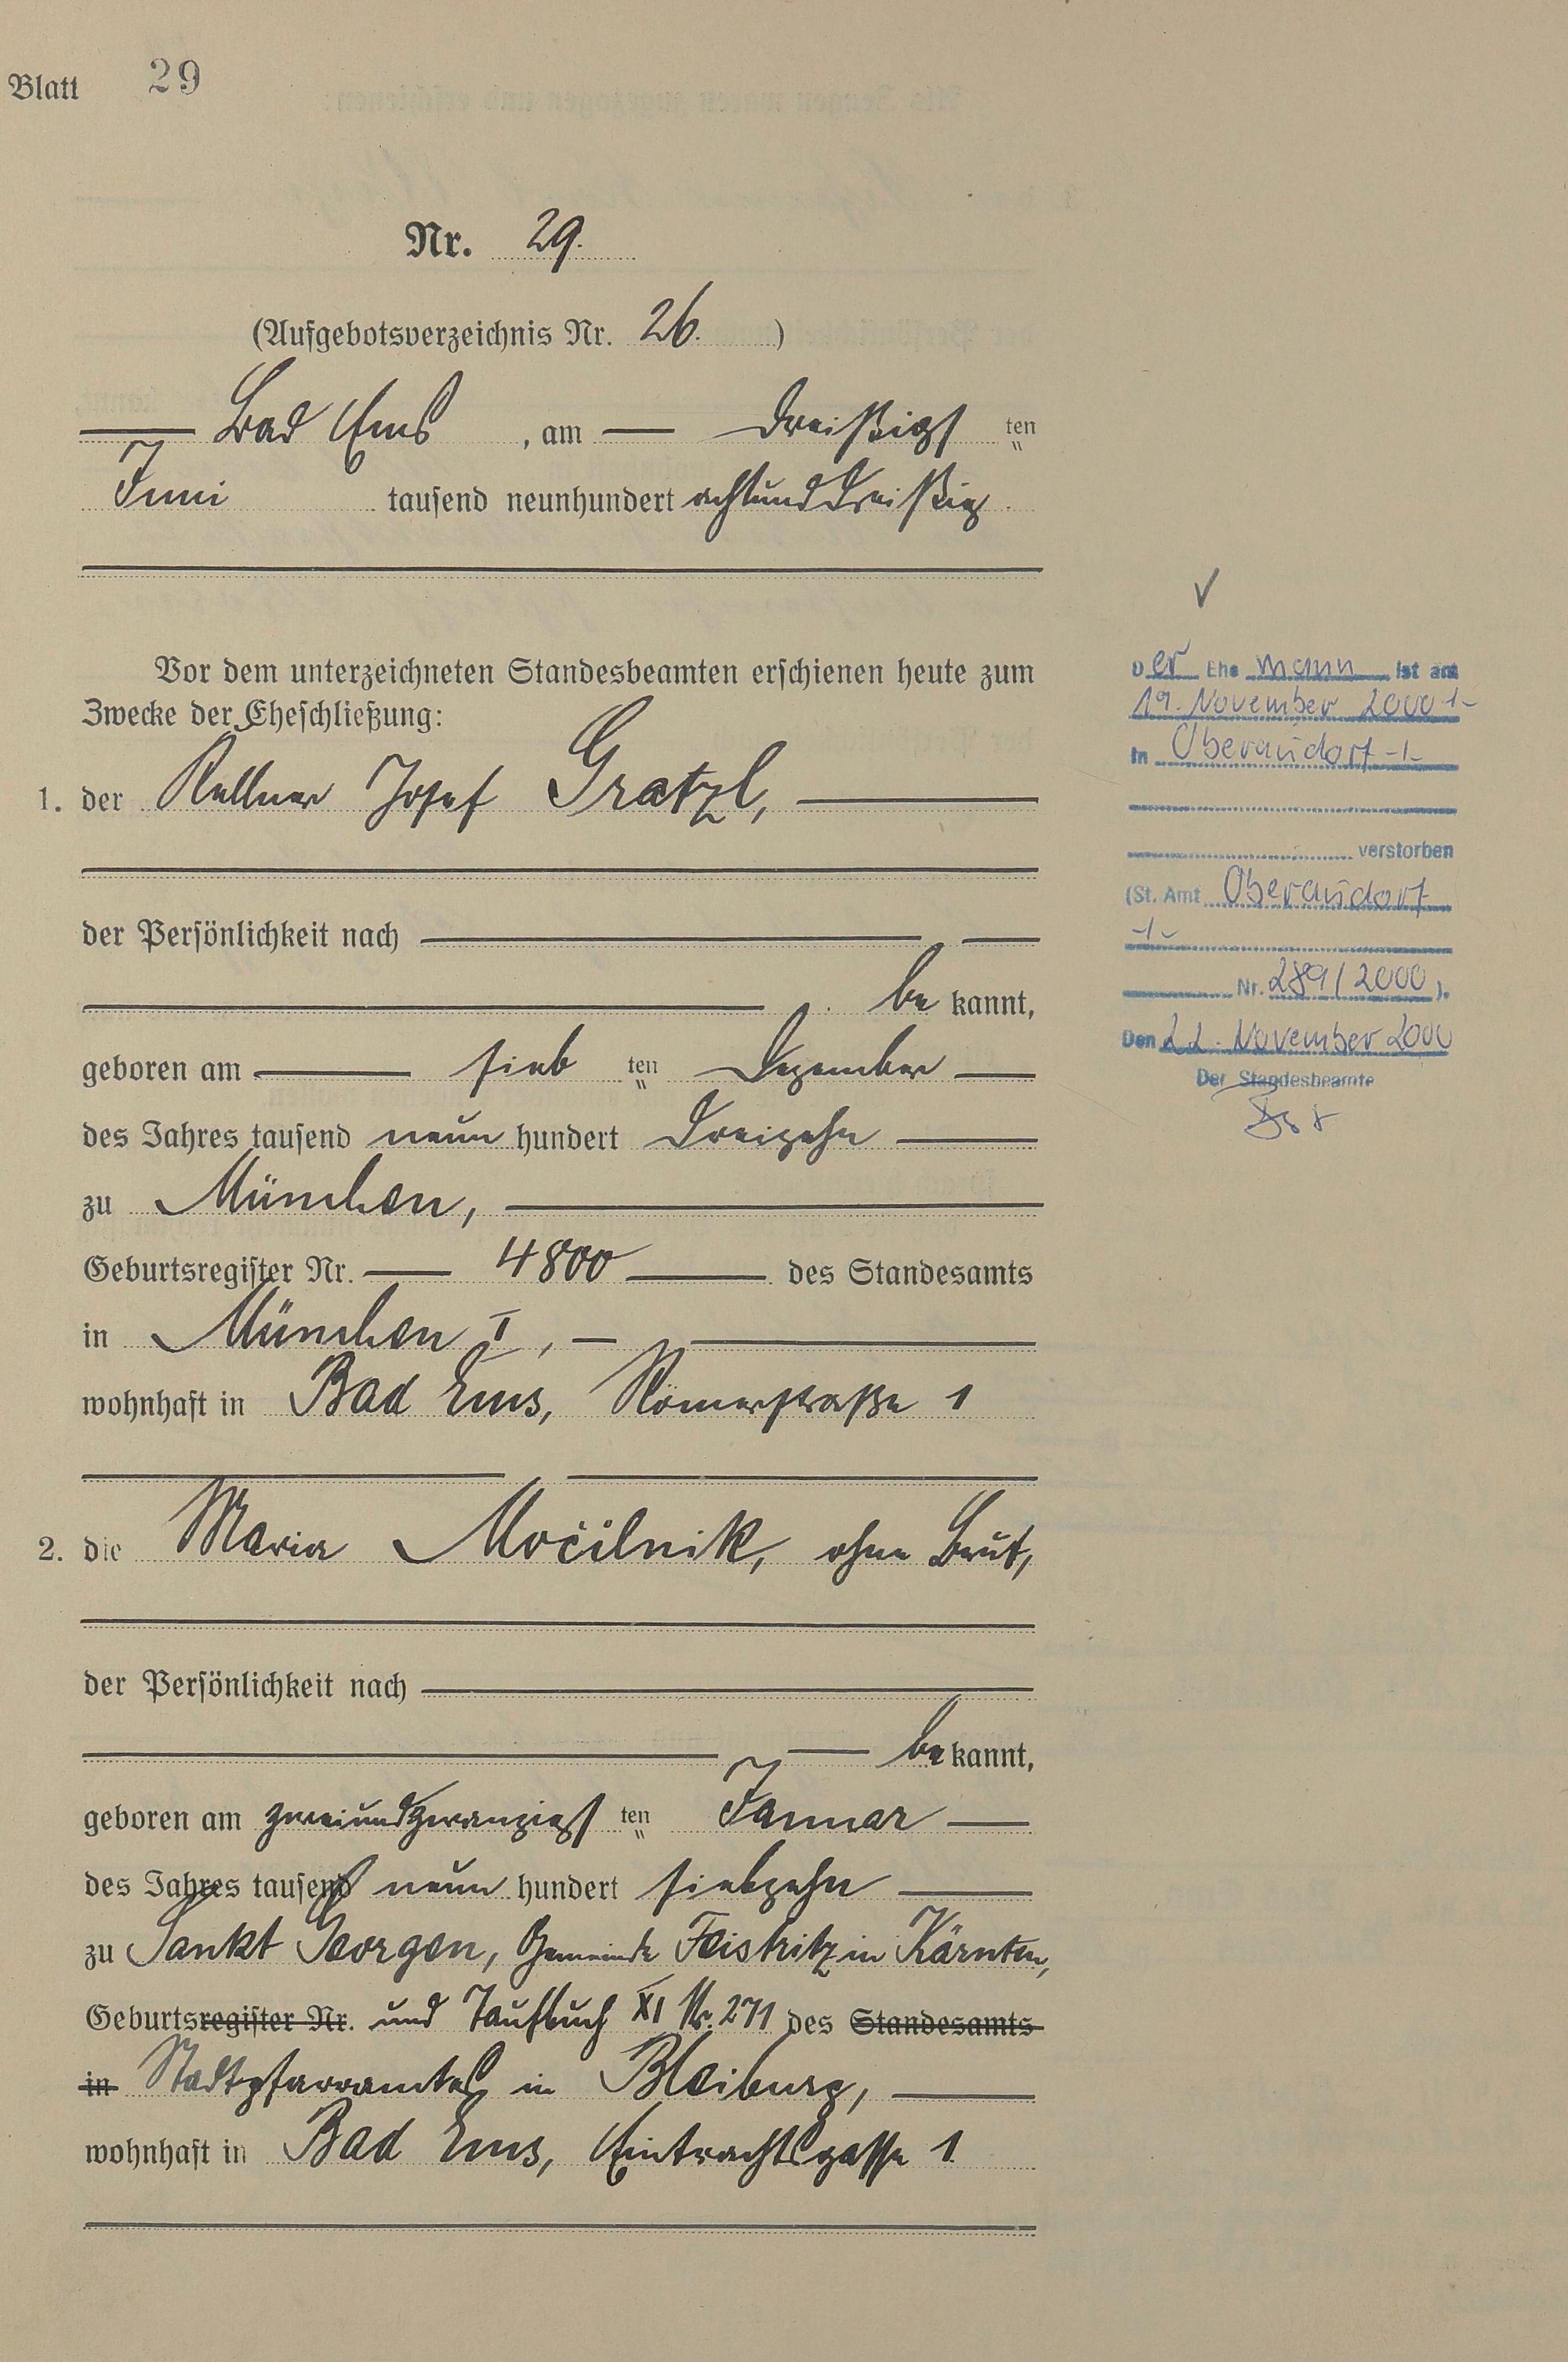 Blatt 29
Nr. 29.
(Aufgebotsverzeichnis Nr. 26. )
Bad Ems, am dreißigsten
Juni tausend neunhundert achtunddreißig.
Vor dem unterzeichneten Standesbeamten erschienen heute zum
Zwecke der Eheschließung:
1. der Kellner Josef Gratzl,
der Persönlichkeit nach
be kannt,
geboren am siebten Dezember
des Jahres tausend neun hundert dreizehn
zu München,
Geburtsregister Nr. 4800 des Standesamts
in München I,
wohnhaft in Bad Ems, Römerstraße 1
2. die Maria Močilnik, ohne Beruf,
der Persönlichkeit nach
bekannt,
geboren am zweiundzwanzigsten Januar
des Jahres tausend neun hundert siebzehn
zu Sankt Georgen, Gemeinde Feistritz in Kärnten,
Geburtsregister Nr. und Taufbuch XI Nr. 271 des Standesamts
in Stadtpfarramtes in Bleiburg,
wohnhaft in Bad Ems, Eintrachtsgasse 1.
✓
Der Ehemann ist am
19. November 2000 -1-
in Oberaudorf -1-
verstorben
(St. Amt Oberaudorf
-1-
Nr. 289/2000 ).
Den 22. November 2000
Der Standesbeamte